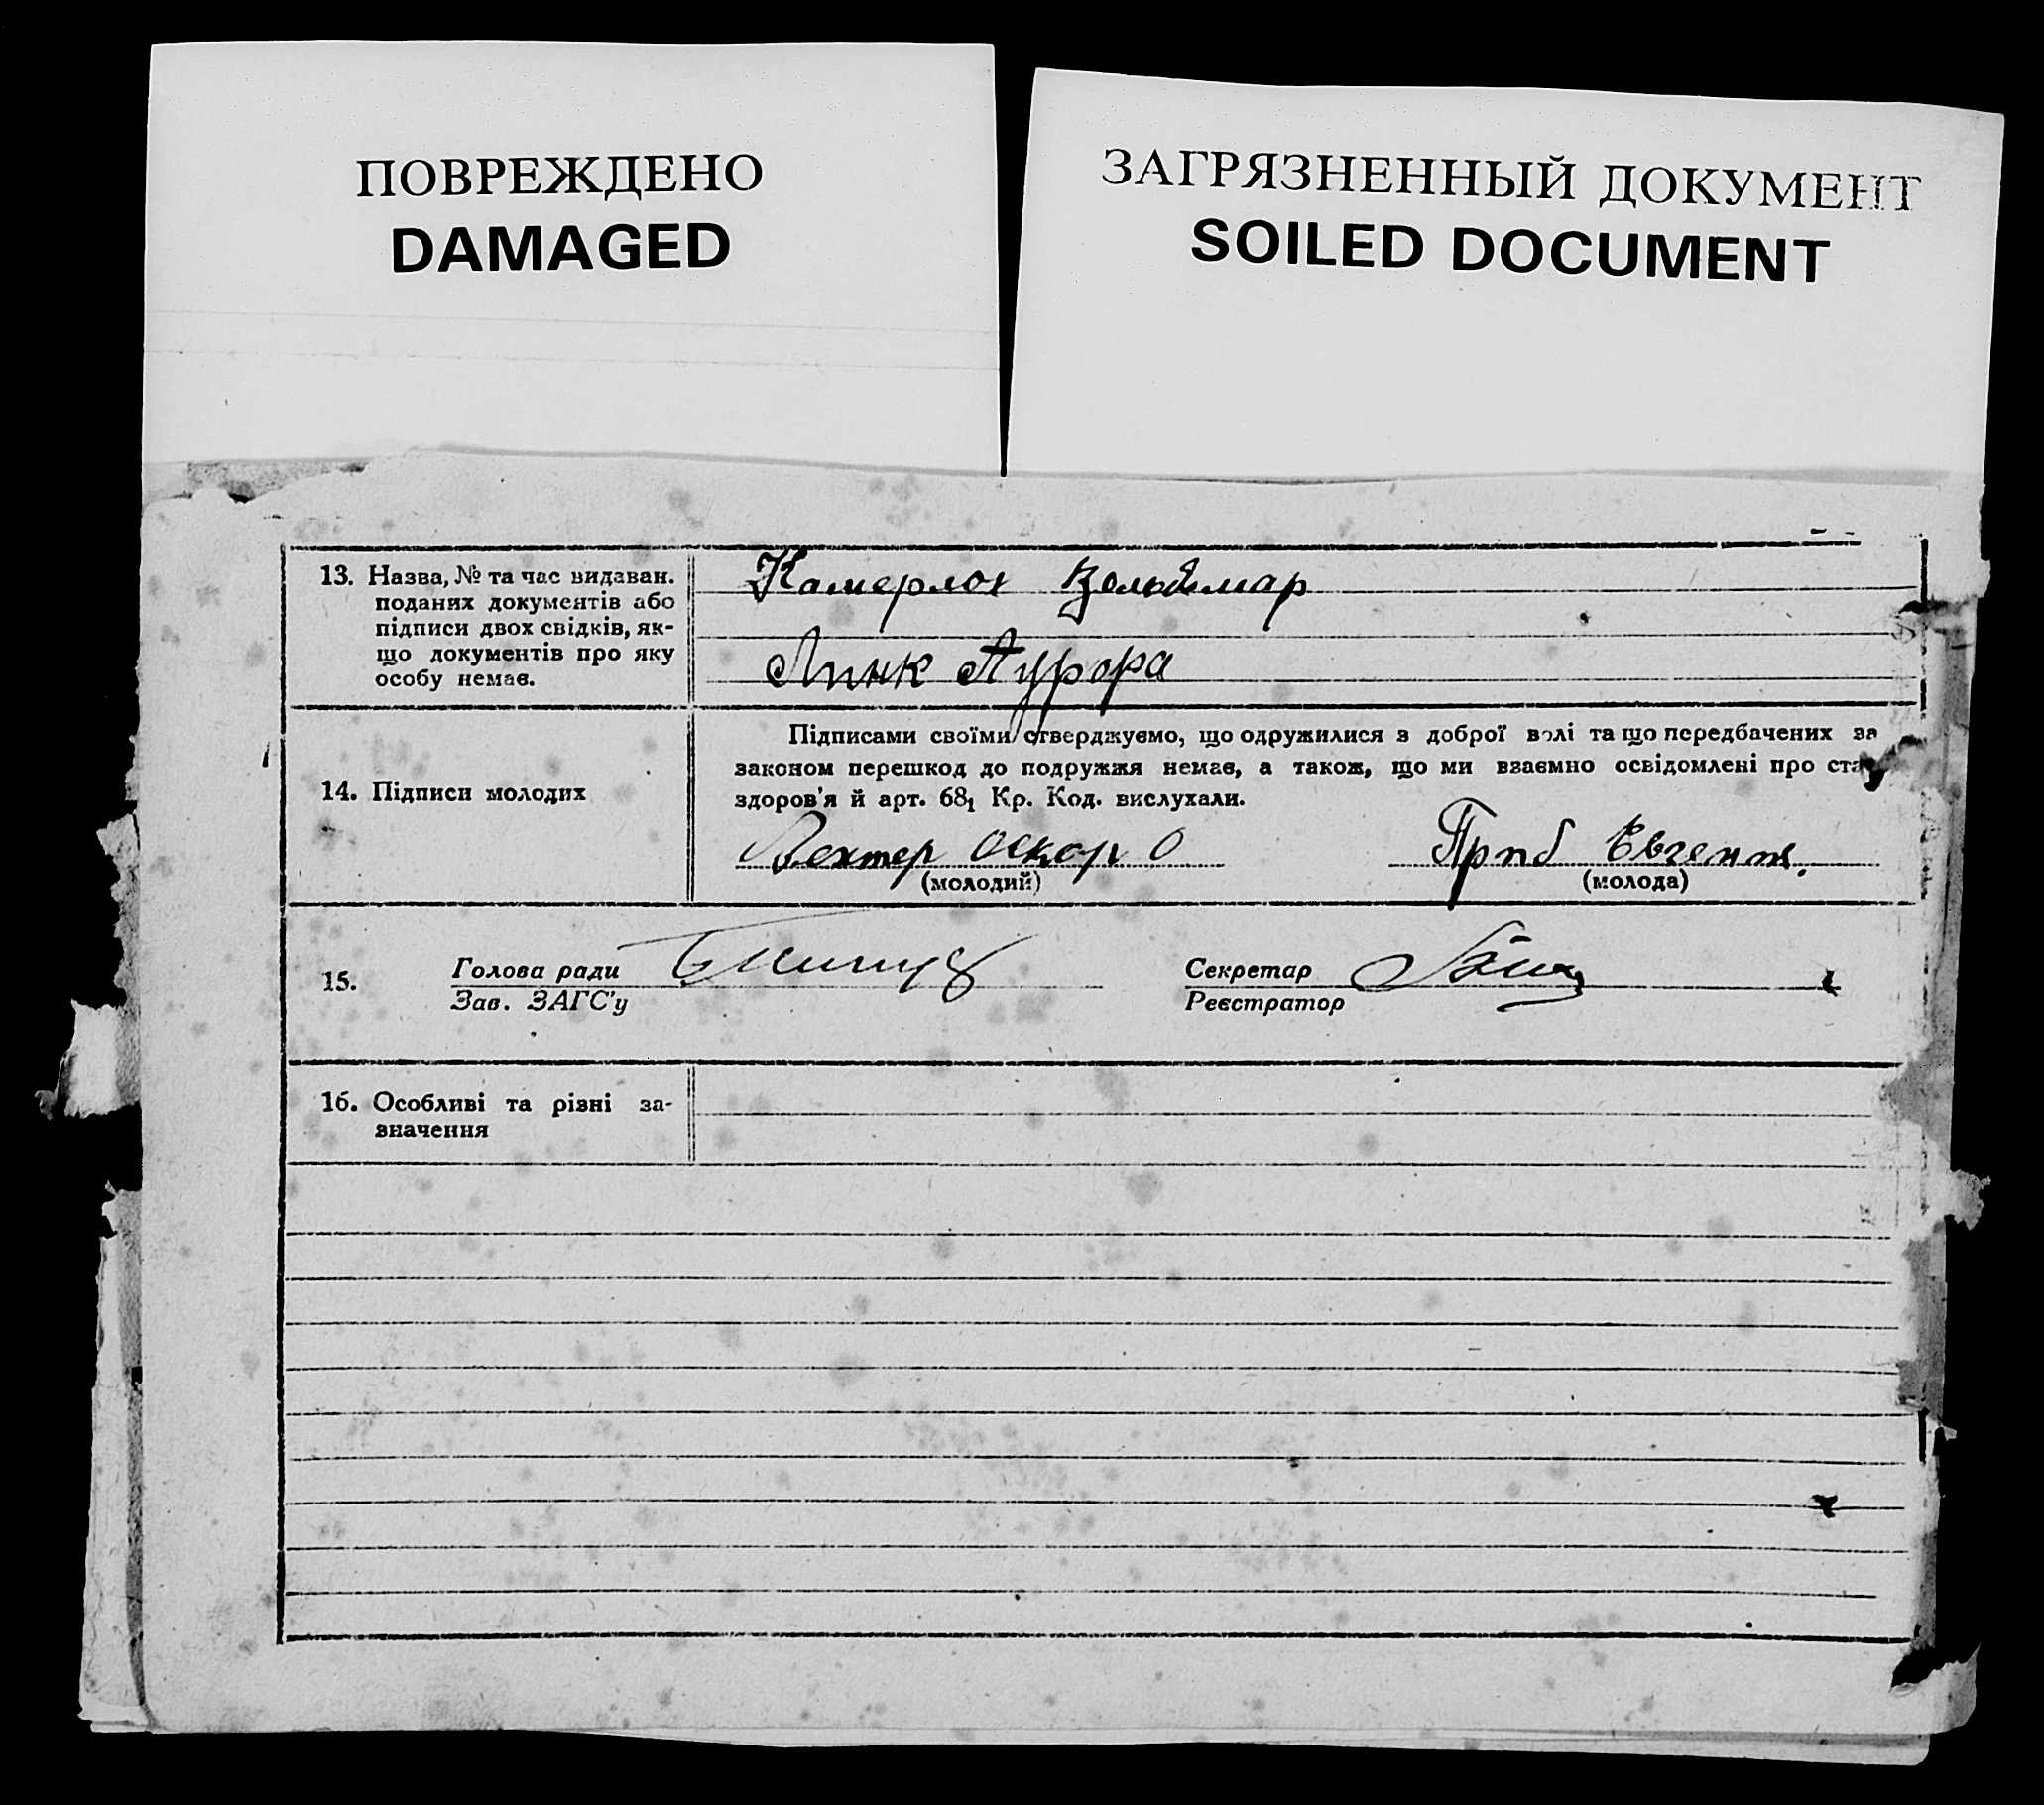 ПОВРЕЖДЕНО
DAMAGED
ЗАГРЯЗНЕННЫЙ ДОКУМЕНТ
SOILED DOCUMENT
13. Назва, № та час видаван.
поданих документів або
підписи двох свідків, як-
що документів про яку
особу немає.
Камерлох Вольдмар
Линк Аурора
14. Підписи молодих
Підписами своїми стверджуємо, що одружилися з доброї волі та що передбачених за
законом перешкод до подружжя немає, а також, що ми взаємно освідомлені про ста
здоров'я й арт. 68₁ Кр. Код. вислухали.
Вехтер Оскар О
(молодий)
Приб Евгения.
(молода)
15.
Голова ради
Зав. ЗАГС'у
Секретар
Реєстратор
16. Особливі та різні за-
значення